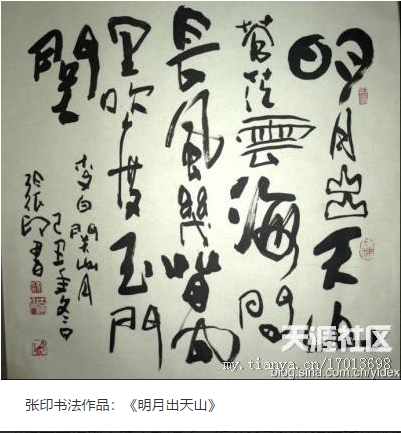 明月出天山
蒼茫雲海間
長風幾萬
里吹度玉門
關
李白關山月
己丑年冬日
張印書
天涯社区
my.tianya.cn/17013698
blog.sina.com.cn/yidex
张印书法作品：《明月出天山》